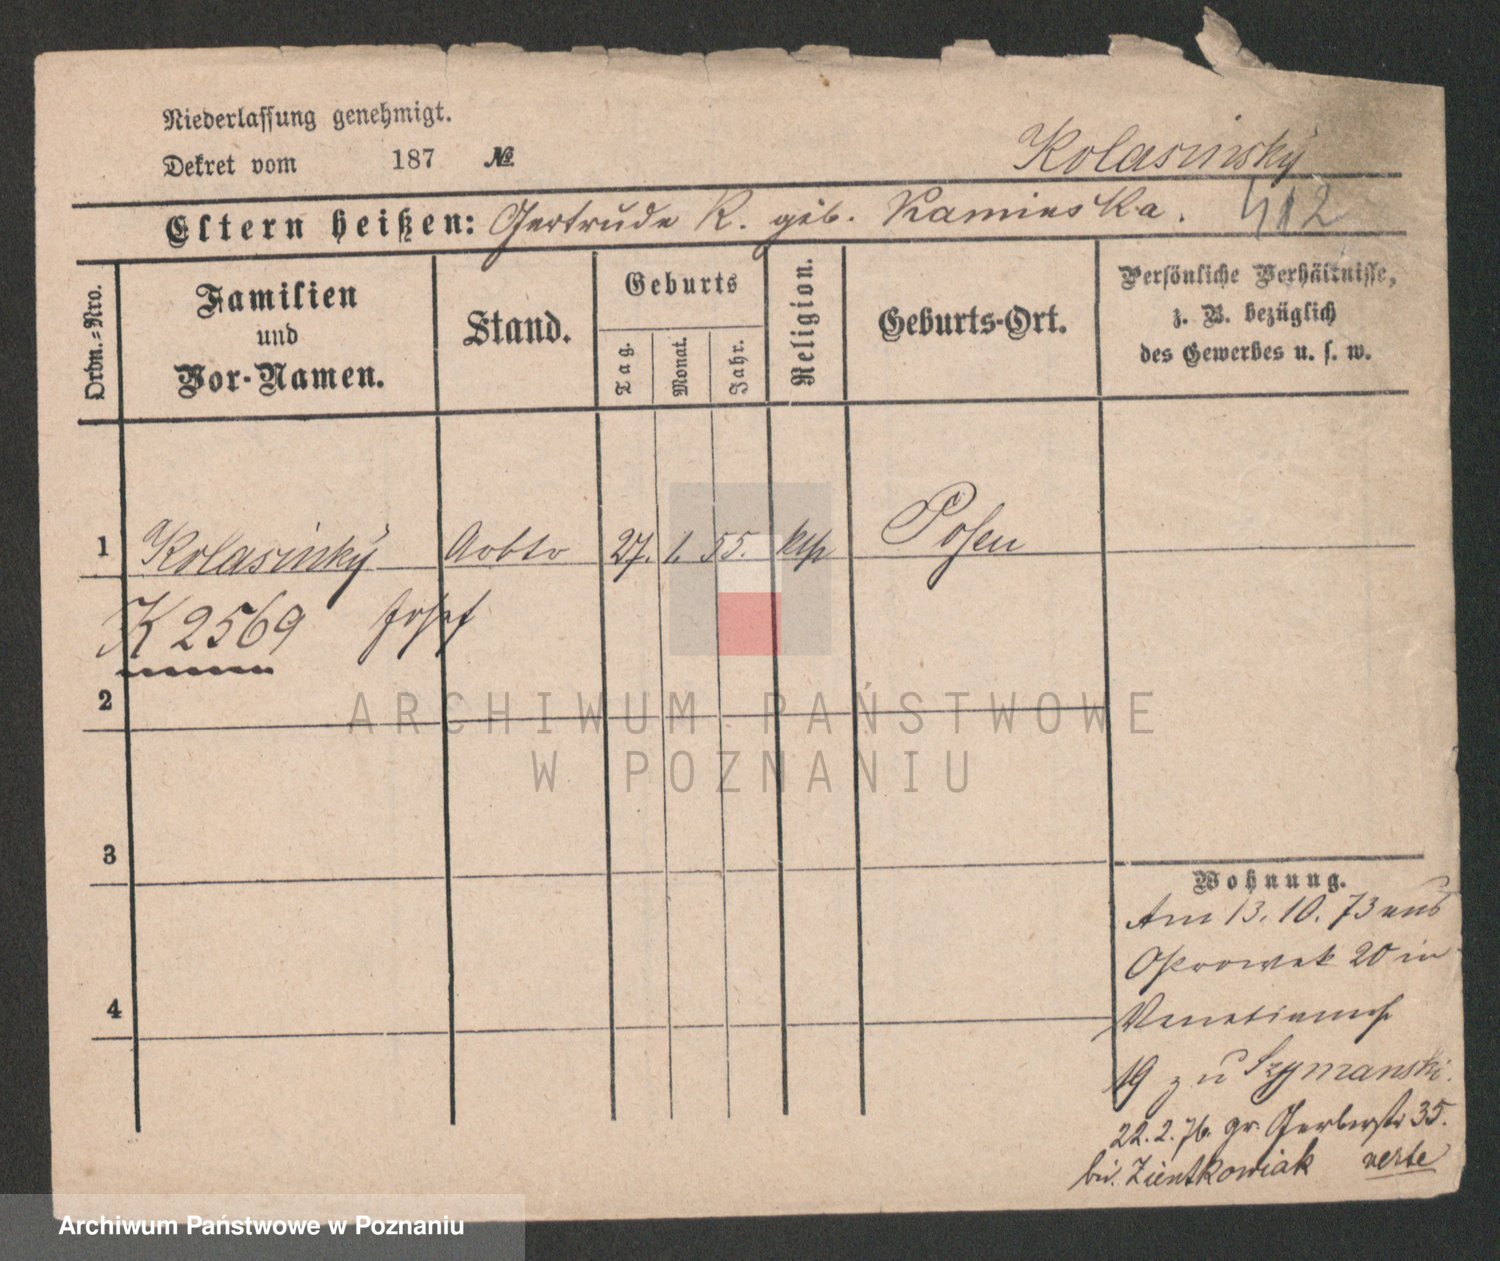 Niederlassung genehmigt.
Dekret vom 187 №
Kolasinsky
Eltern heißen: Gertrude K. geb. Kamienska.
412
Ordn.-Nro.
Familien
und
Vor-Namen.
Stand.
Geburts
Tag.
Monat.
Jahr.
Religion.
Geburts-Ort.
Persönliche Verhältnisse,
z. B. bezüglich
des Gewerbes u. s. w.
1 Kolasinky Arbtr 27. 1. 55. kth Posen
K 2569 Josef
2
ARCHIWUM PAŃSTWOWE
W POZNANIU
3
4
Wohnung.
Am 13. 10. 73 aus
Ostrowek 20 in
Venetianerstr
19 zu Szymanski.
22. 2. 76. gr. Gerberstr 35.
bei Zientkowiak verte
Archiwum Państwowe w Poznaniu